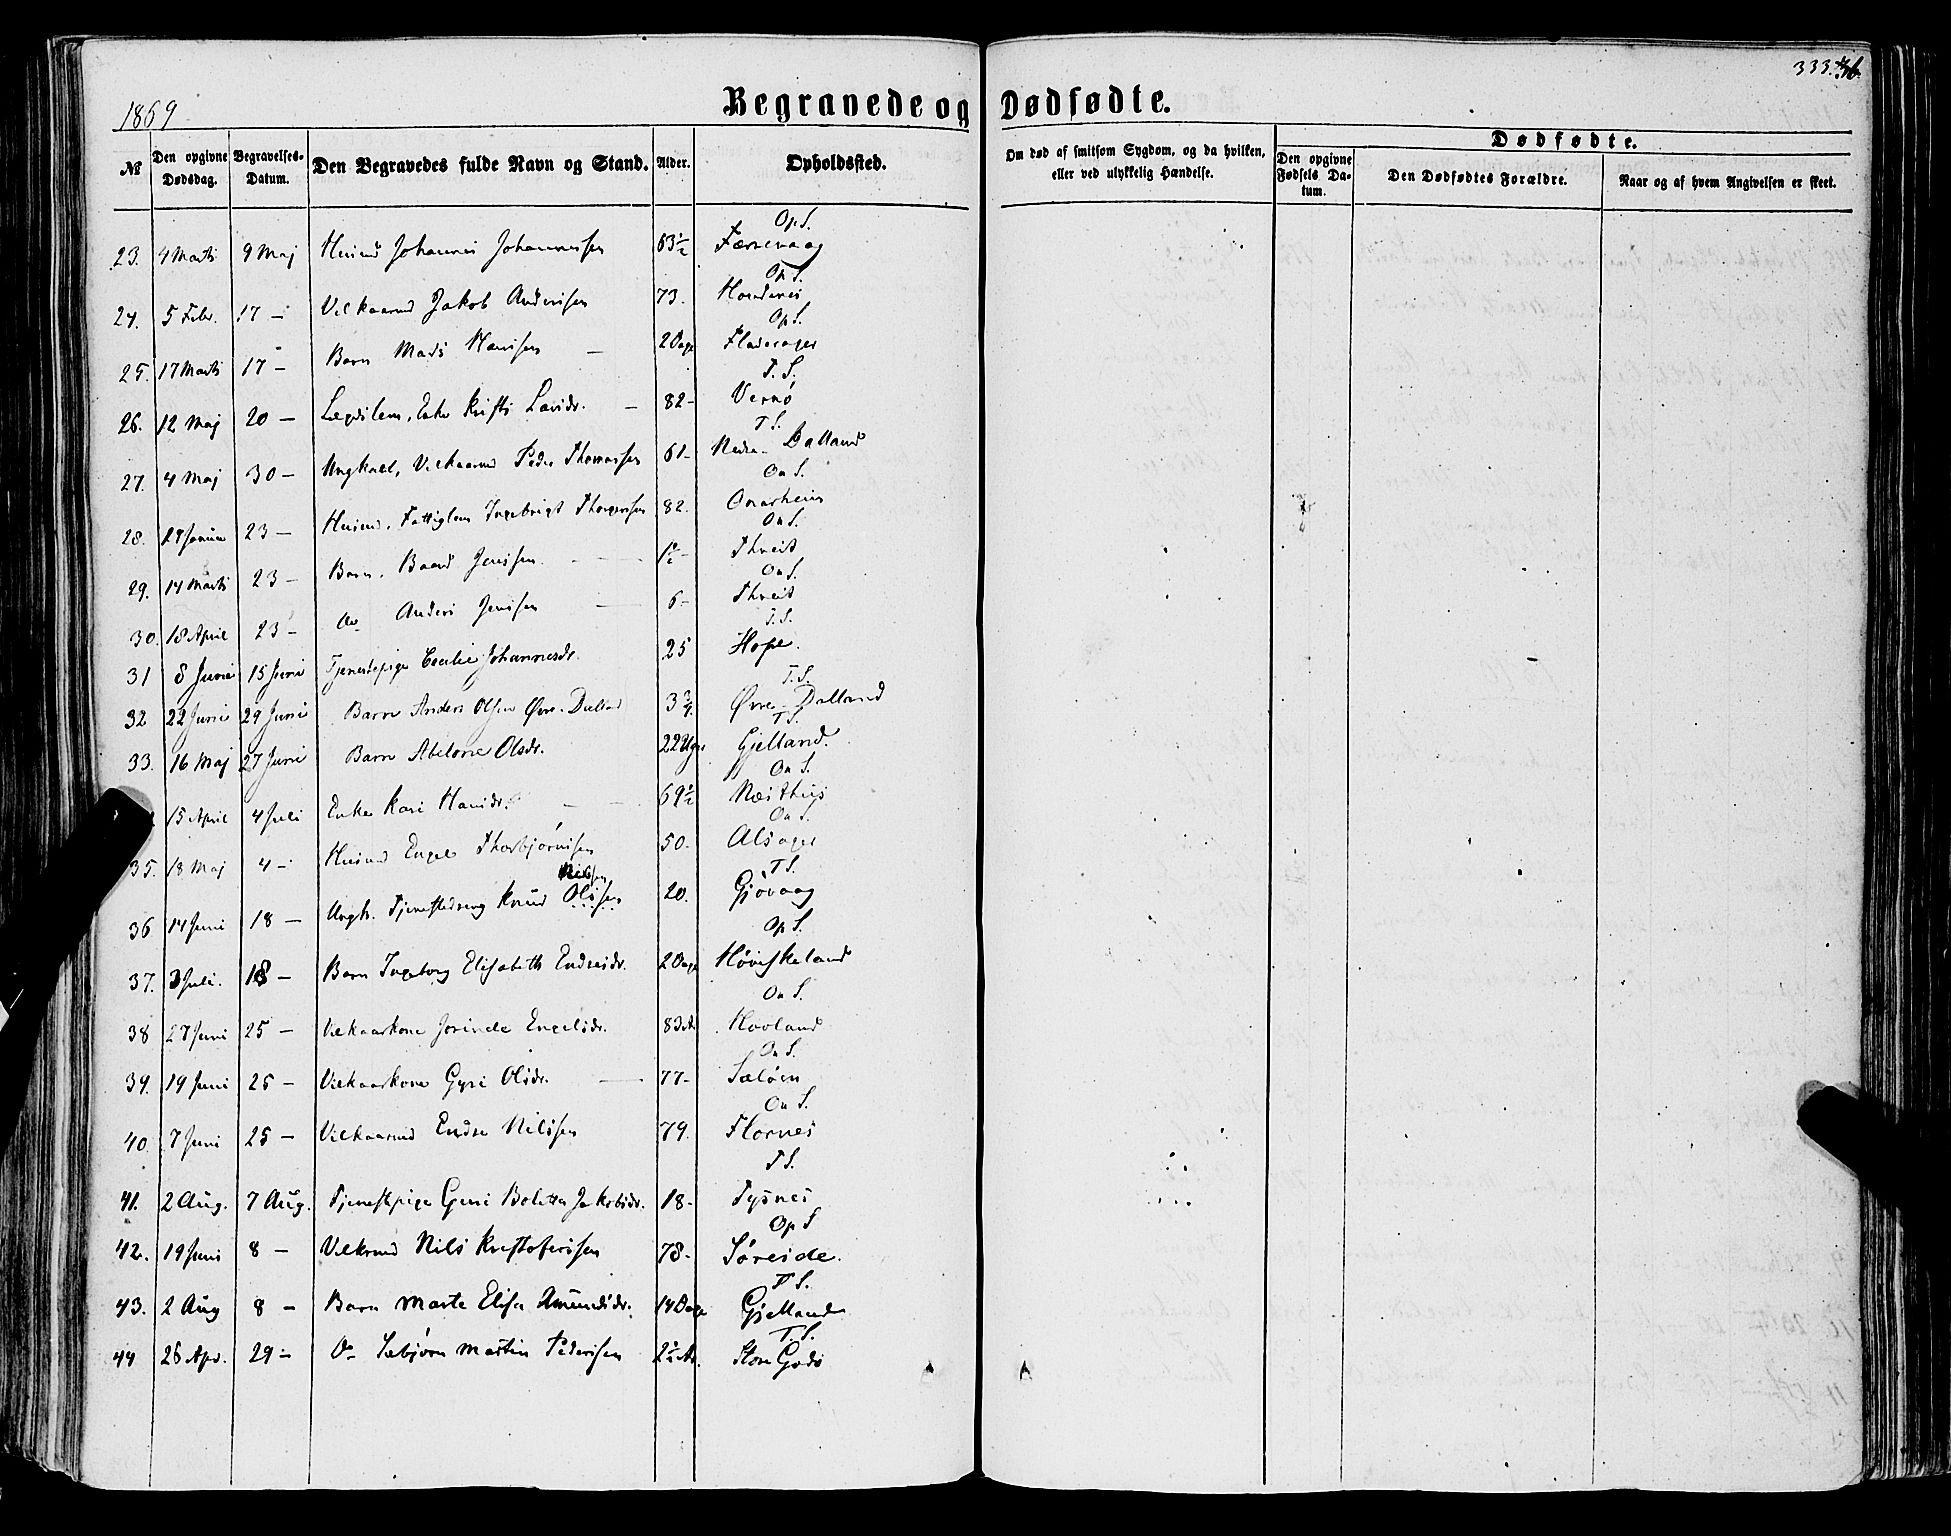 333.
1869
Begravede og Dødfødte.
№ Den opgivne Dødsdag. Begravelses-Datum. Den Begravedes fulde Navn og Stand. Alder. Opholdssted. Om død af smitsom Sygdom, og da hvilken, eller ved ulykkelig Hændelse. Dødfødte. Den opgivne Fødsels Datum. Den Dødfødtes Forældre. Naar og af hvem Angivelsen er skeet.
Op S.
23. 4 Marts 9 Maj Husmd Johannes Johannessen 63½ Færnevaag
Op S.
24. 5 Febr. 17 — Vilkaarmd Jakob Andersen 73. Hondenes
Op S.
25. 17 Marts 17 — Barn Mads Hansen — 2 Dage Fladerager
T. S.
26. 12 Maj 20 — Lægdslem, Enke Kristi Larsdr. — 82 — Vernø
T S.
27. 4 Maj 30 — Ungkarl, Vilkaarmd Peder Thomassen 61 — Nedre Dalland
On S.
28. 29 Januar 23 — Husmd. Fattiglem Ingebrigt Thorgersen 82. Onarheim
On S.
29. 14 Marts 23 — Barn. Baard Jensen ½ — Thveit
On S.
30. 18 April 23 — do Anders Jensen 6 — Thveit
T. S.
31 8 Juni 15 Juni Tjenestepige Cecilie Johannesdr. 25 Hope.
T. S.
32 22 Juni 29 Juni Barn Anders Olsen Øvre-Dalland 3¾ Øvre-Dalland
T S.
33. 16 Maj 27 Juni Barn Abelone Olsdr. 22 Uger Gjelland.
On S.
15 April 4 Juli Enke Kari Hansdr. 69½ Næsthus
On S.
35. 18 Maj 4 — Husmd Engel Thorbjørnsen 50. Alsager
Nilsen T S.
36 14 Juni 18 — Ungk. Tjenestedreng Knud Olssen 20. Gjøvaag
Op S.
37. 3 Juli. 18 — Barn Ingeborg Elisabeth Endresdr. 2 Dage Høviskeland
On S.
38 27 Juni 25 — Vilkaarkone Jorinde Engelsdr. 83 Hovland
On S.
39. 19 Juni 25 — Vilkaarkone Gyri Olsdr. — 77 — Sæløen
On S.
40. 7 Juni 25 — Vilkaarmd Endre Nilssen 79. Flornes
T S.
41. 2 Aug. 7 Aug. Tjenestpige Guri Bolette Jakobsdr. 18 — Tysnes
Op S
42. 19 Juni 8 — Vilkrmd Nils Kristofersen 78 — Søreide.
T S.
43. 2 Aug 8 — Barn Marta Elisa Amundsdr. 14 Dage Gjelland
T. S.
44 26 Apr. 29 — Do Sæbjørn Martin Pedersen 2½ Ar. Store Godø